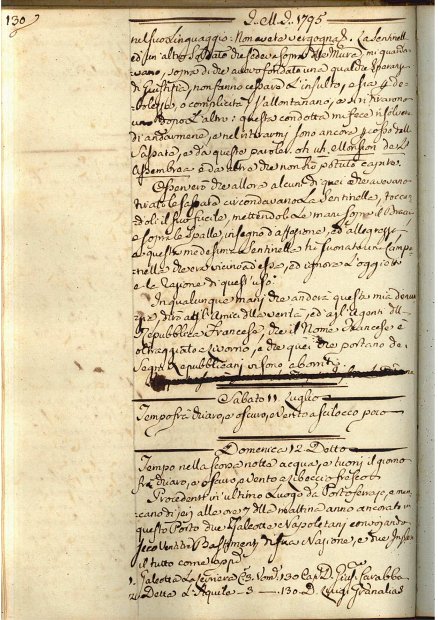 130
D. M. D. 1795
nel suo linguaggio: Non avete vergogna? La Sentinella
ed un' altro Soldato che sedeva sopra delle Mura, mi guarda-
vano, sopra di che avevo fondato una qualche speranza
di Giustizia, non fanno cessare L'insulto, o sia p. de-
bolezza, o complicità s'allontanano, e si ritirano
uno dopo L'altro: questa condotta mi fece risolvere
di andarmene, e nel ritirarmi sono ancora
Sassata, e da queste parole: oh uh, ellason de l'
Assemblea e da altre che non ho potuto capire.
Osserverò che allora alcuni di quei che avevano
tirate le sassate circondavano La Sentinella, toccan-
doli il suo fucile, mettendoli Le mani sopra il Braccio
e sopra le Spalle, in segno d'affezione, ed allegrezza
a questa medesima Sentinella fù suonata una Campa-
nella che era vicino ad essa, ed ignoro L'oggietto
e la Ragione di quest'uso.
In qualunque mani che anderà questa mia denun-
zia, dirò all'Amico della verità, ed agl'Agenti della
Repubblica Francese, che il Nome Francese è
oltraggiato a Livorno, e che quei che portano de
Segni Repubblicani vi sono aboriti
Sabato 11 Luglio
Tempo frà chiaro, e oscuro, e Vento a scilocco poco
Domenica 12 Detto
Tempo nella scorsa notte acqua, e tuoni il giorno
frà chiaro, e oscuro, e Vento a Libeccio fresco
Procedenti in ultimo Luogo da Portoferrajo, e man-
cano di jeri alle ore 7 della mattina anno ancorato in
questo Porto due Galeotte Napoletani convogiando
seco Venti di Bastimenti di sua Nazione, e due Inglesi
il tutto come app.
1. Galeotta La Levriera C. 3. Vom. 130 Cap. D. Gius. Carabba
2. Detta L'Aquila - 3 - - 130 - D. Luigi Granalias